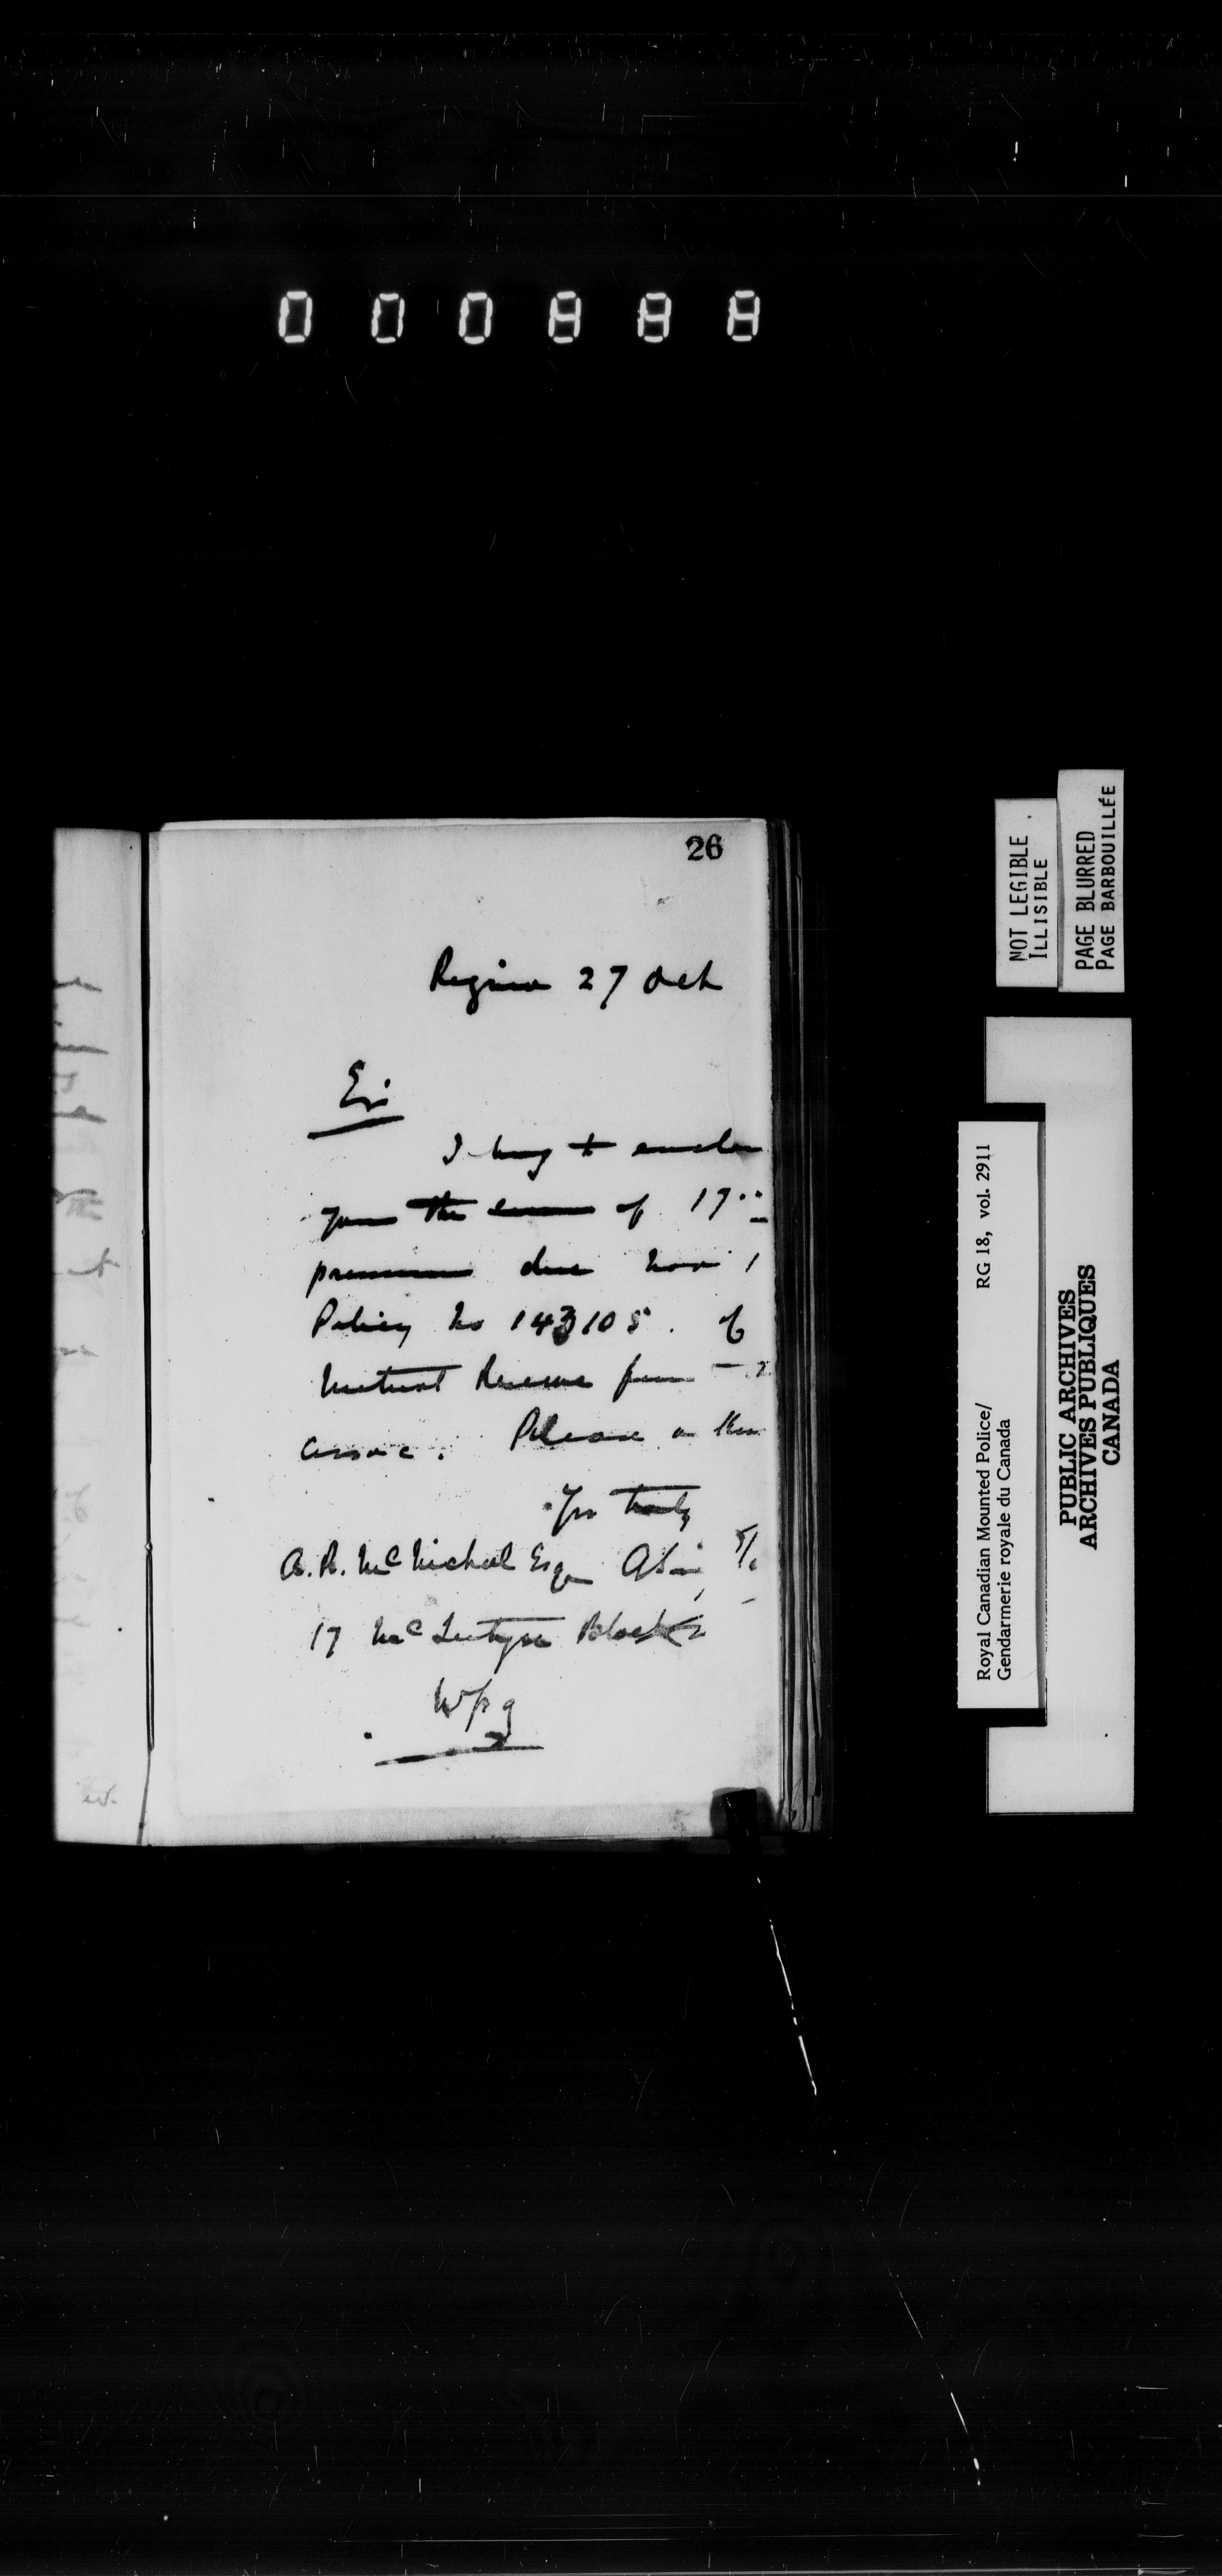 000888
26
Regina 27 Oct
Sir
I beg to enclose
you the sum of 17.00
premium due Nov 1
Policy No 143105. of
Mutual Reserve fun
assoc. Please
Yrs truly
A. R. McNichol Esq
17 McIntyre Block
Wpg
NOT LEGIBLE
ILLISIBLE
PAGE BLURRED
PAGE BARBOUILLÉE
Royal Canadian Mounted Police/ RG 18, vol. 2911
Gendarmerie royale du Canada
PUBLIC ARCHIVES
ARCHIVES PUBLIQUES
CANADA